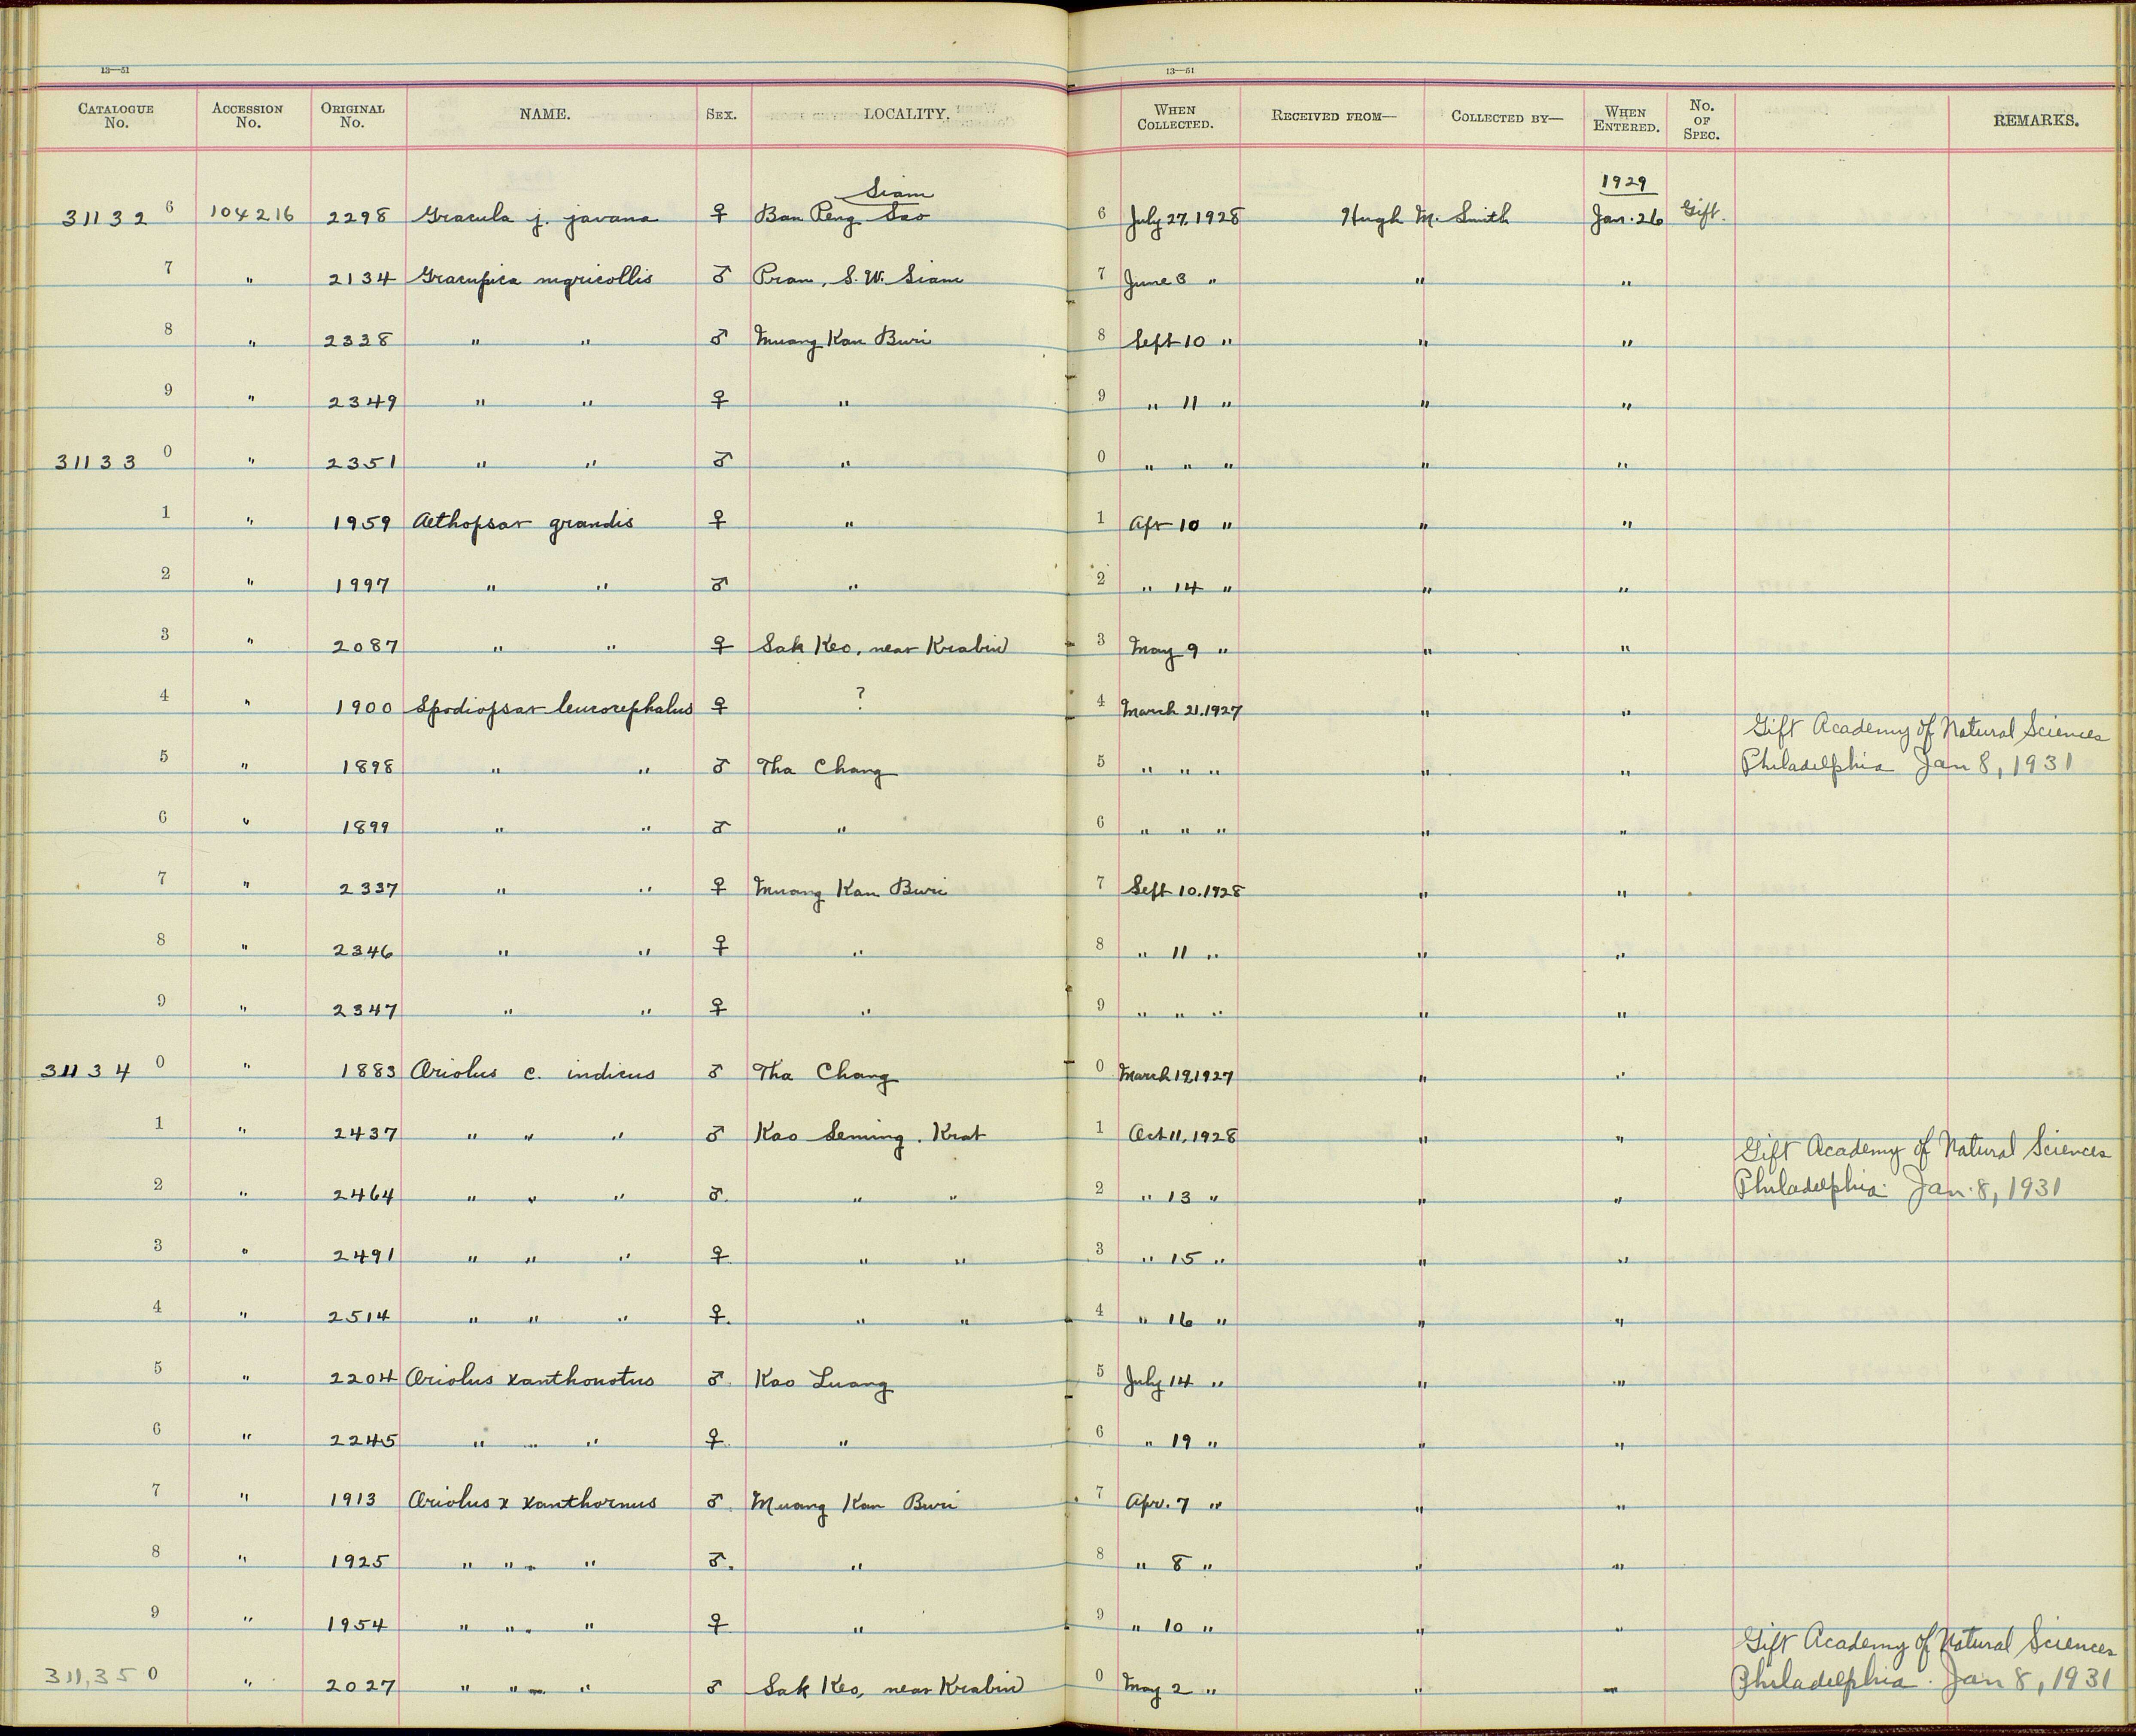 13—51 13—51
CATALOGUE No. ACCESSION No. ORIGINAL No. NAME. SEX. LOCALITY. WHEN COLLECTED. RECEIVED FROM— COLLECTED BY— WHEN ENTERED. No. OF SPEC. REMARKS.
Siam 1929
31132 6 104216 2298 Gracula j. javana ♀ Ban Peng Sao 6 July 27, 1928 Hugh M. Smith Jan. 26 Gift.
7 " 2134 Gracupica nigricollis ♂ Pran, S.W. Siam 7 June 3 " " "
8 " 2338 " " ♂ Muang Kan Buri 8 Sept 10 " " "
9 " 2349 " " ♀ " 9 " 11 " " "
31133 0 " 2351 " " ♂ " 0 " " " " "
1 " 1959 Aethopsar grandis ♀ " 1 Apr 10 " " "
2 " 1997 " " ♂ " 2 " 14 " " "
3 " 2087 " " ♀ Sak Keo, near Krabin 3 May 9 " " "
4 " 1900 Spodiopsar leucocephalus ♀ ? 4 March 21, 1927 " "
Gift Academy of Natural Sciences
5 " 1898 " " ♂ Tha Chang 5 " " " " " Philadelphia Jan 8, 1931
6 " 1899 " " ♂ " 6 " " " " "
7 " 2337 " " ♀ Muang Kan Buri 7 Sept 10, 1928 " "
8 " 2346 " " ♀ " 8 " 11 " " "
9 " 2347 " " ♀ " 9 " " " " "
31134 0 " 1883 Oriolus c. indicus ♂ Tha Chang 0 March 19, 1927 " "
1 " 2437 " " " ♂ Kao Seming, Krat 1 Oct 11, 1928 " "
Gift Academy of Natural Sciences
2 " 2464 " " " ♂. " " 2 " 13 " " " Philadelphia. Jan. 8, 1931
3 " 2491 " " " ♀ " " 3 " 15 " " "
4 " 2514 " " " ♀. " " 4 " 16 " " "
5 " 2204 Oriolus xanthonotus ♂. Kao Luang 5 July 14 " " "
6 " 2245 " " " ♀. " 6 " 19 " " "
7 " 1913 Oriolus x xanthornus ♂. Muang Kan Buri 7 Apr. 7 " " "
8 " 1925 " " " ♂. " 8 " 8 " " "
9 " 1954 " " " ♀ " 9 " 10 " " "
Gift Academy of Natural Sciences
311,35 0 " 2027 " " " ♂ Sak Keo, near Krabin 0 May 2 " " " Philadelphia. Jan 8, 1931